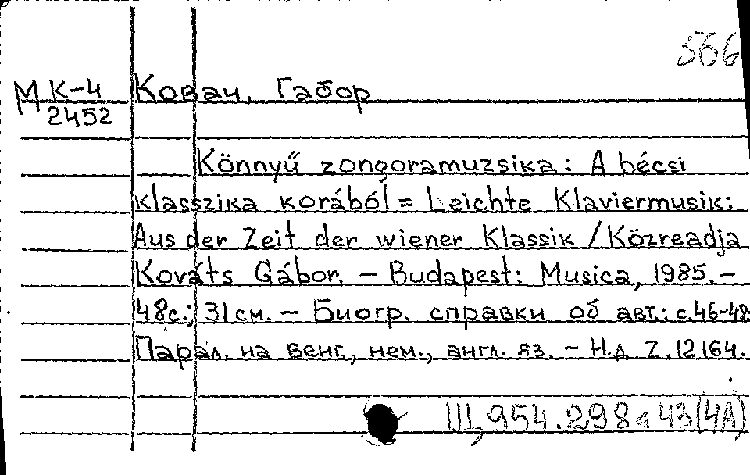 566
МК-4 Ковач, Габор
2452
Könnyű zongoramuzsika: A bécsi
klasszika korából = Leichte Klaviermusik:
Aus der Zeit der wiener Klassik / Közreadja
Kováts Gábor. – Budapest: Musica, 1985. –
48с.; 31 см. – Биогр. справки об авт.: с.46-48
Парал. на венг., нем., англ. яз. – Н.д. Z.12164.
III, 954.298 43(4А)